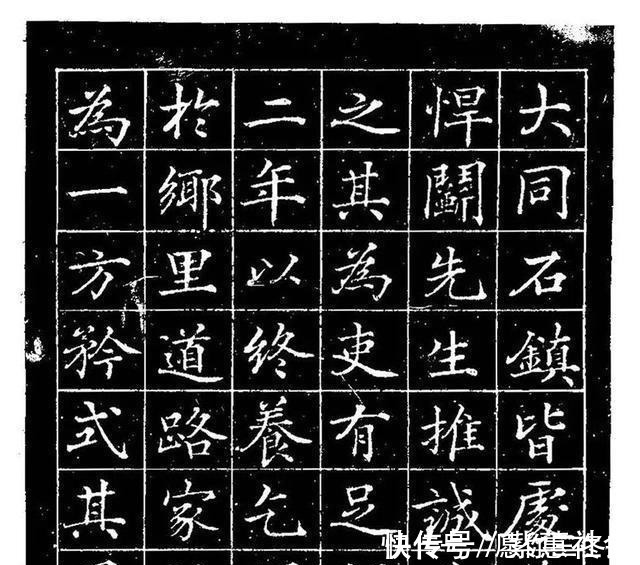 大同石鎮皆
悍鬭先生推誠
之其為吏有足
二年以終養乞
於鄉里道路家
為一方矜式其
快传号//